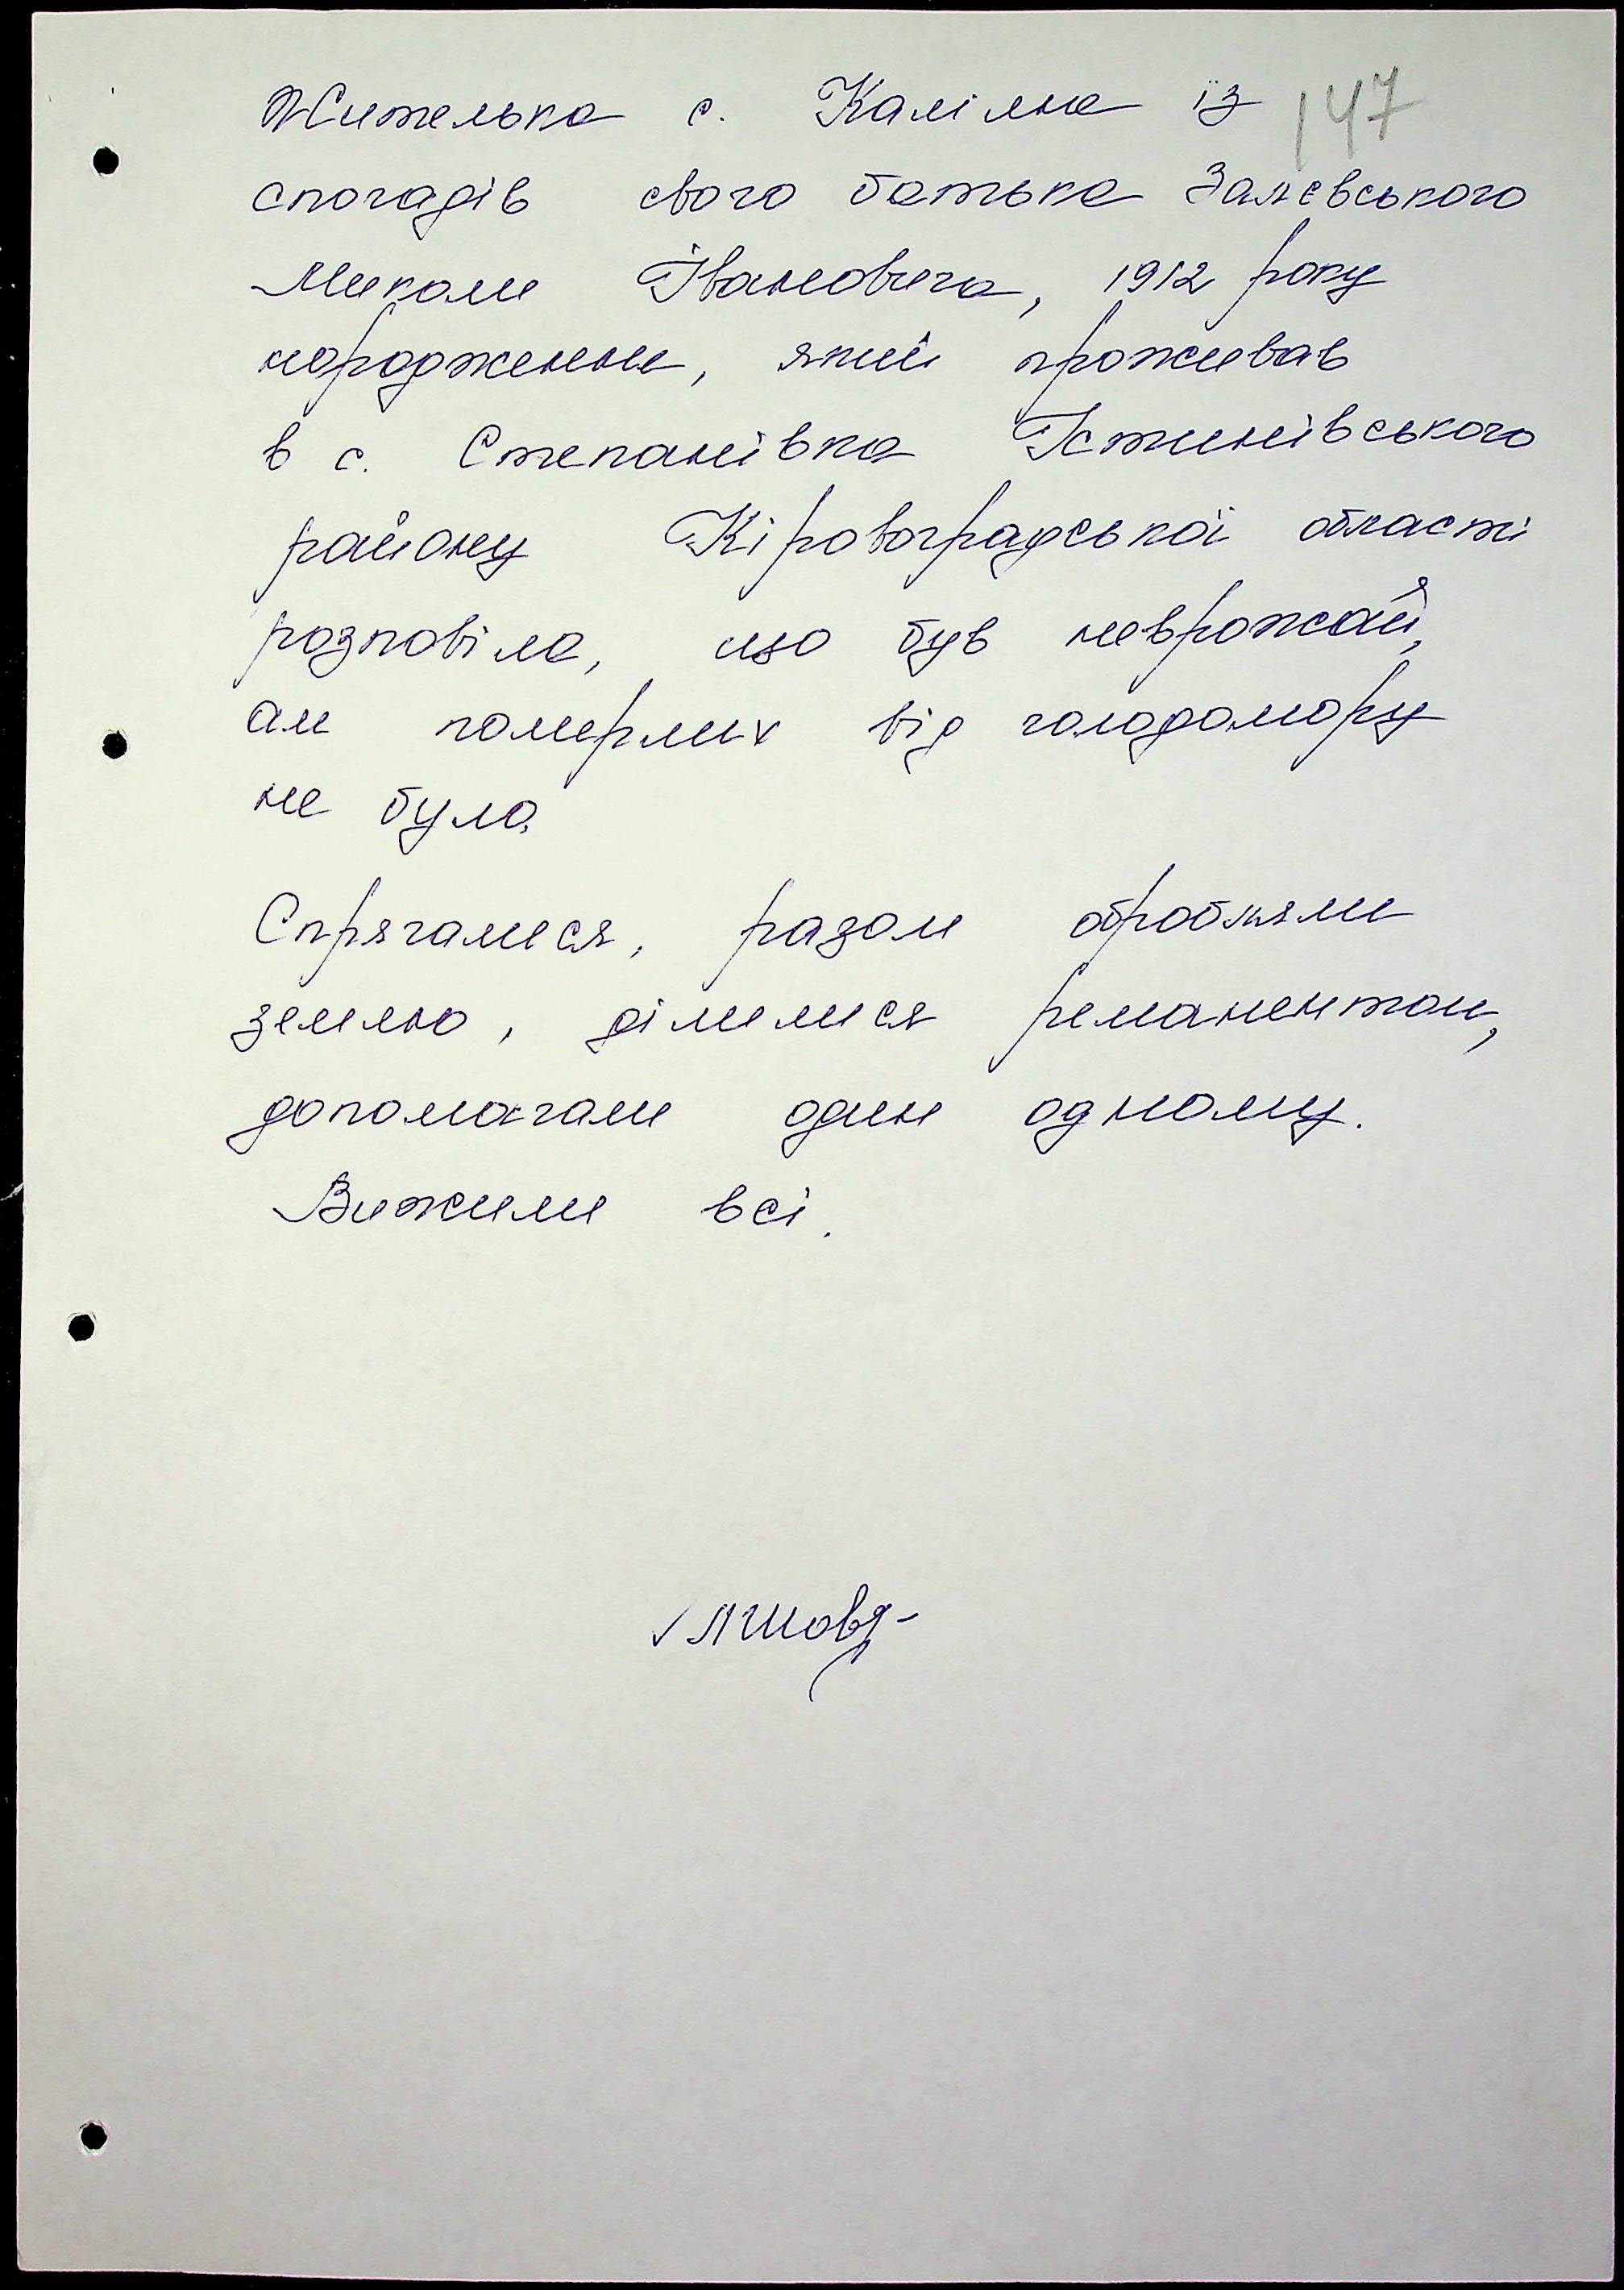 Жителька с. Калілна із 147
спогадів свого батька Залєвського
Миколи Івановича, 1912 року
народження, який проживав
в с. Степанівка Устинівського
району Кіровоградської області
розповіла, що був неврожай,
але померлих від голодомору
не було.
Спрягалися, разом обробляли
землю, ділилися реманентом,
допомагали один одному.
Вижили всі.